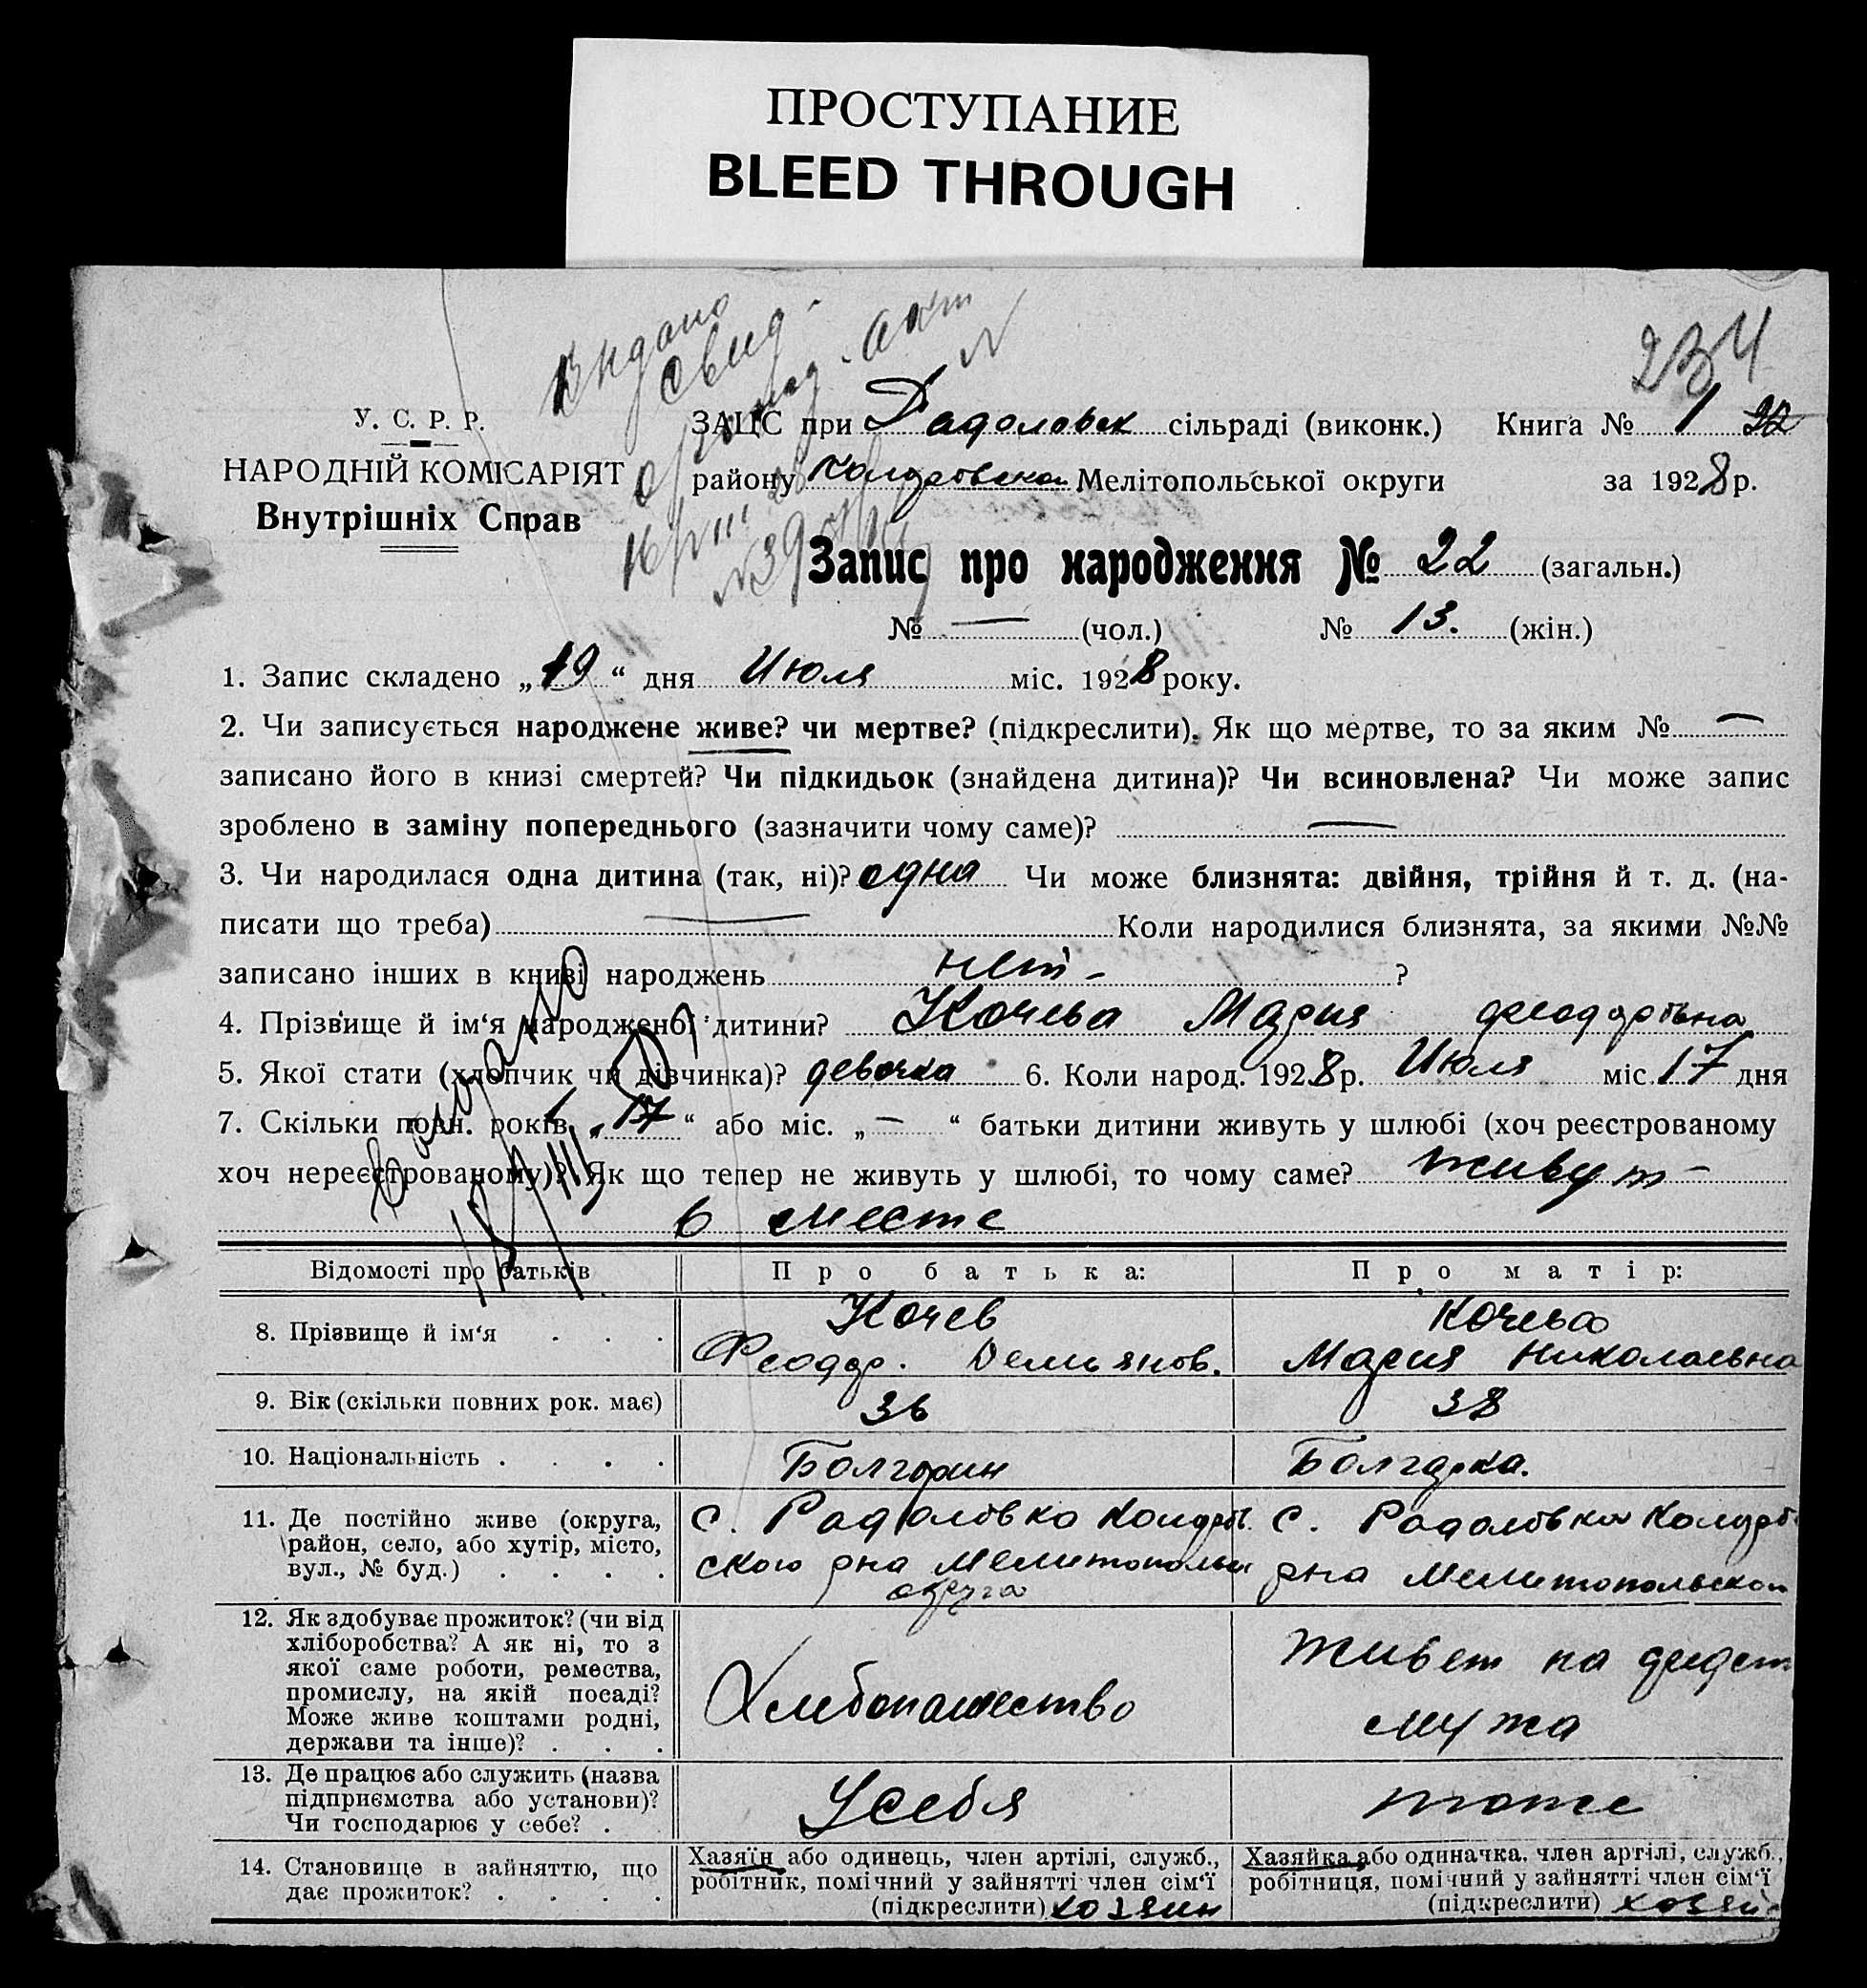 ПРОСТУПАНИЕ
BLEED THROUGH
Видано
свид.
234
У. С. Р. Р.
НАРОДНІЙ КОМІСАРІЯТ
Внутрішніх Справ
ЗАЦС при Радоловск сільраді (виконк.) Книга № 1 22
району Мелітопольської округи за 1928 р.
Запис про народження № 22 (загальн.)
№ — (чол.) № 13. (жін.)
1. Запис складено „19“ дня Июля міс. 1928 року.
2. Чи записується народжене живе? чи мертве? (підкреслити). Як що мертве, то за яким № —
записано його в книзі смертей? Чи підкидьок (знайдена дитина)? Чи всиновлена? Чи може запис
зроблено в заміну попереднього (зазначити чому саме)? —
3. Чи народилася одна дитина (так, ні)? одна Чи може близнята: двійня, трійня й т. д. (на-
писати що треба) — Коли народилися близнята, за якими №№
записано інших в книзі народжень нет - ?
4. Прізвище й ім‘я народженої дитини? Кочева Мария Феодоровна
5. Якої статі (хлопчик чи дівчинка)? девочка 6. Коли народ. 1928 р. Июля міс. 17 дня
7. Скільки повн. років „17“ або міс. „—“ батьки дитини живуть у шлюбі (хоч реєстрованому
хоч нереєстрованому)? Як що тепер не живуть у шлюбі, то чому саме? живут -
в месте
Відомості про батьків Про батька: Про матір:
8. Прізвище й ім‘я . . . Кочев Феодор. Демьянов. Кочева Мария Николаевна
9. Вік (скільки повних рок. має) 36 38
10. Національність . . . . Болгарин Болгарка.
11. Де постійно живе (округа,
район, село, або хутір, місто,
вул., № буд.) . . . .
с. Радоловка
ского рна Мелитопольск
округа
с. Радоловка
рна Мелитопольской
12. Як здобуває прожиток? (чи від
хліборобства? А як ні, то з
якої саме роботи, ремества,
промислу, на якій посаді?
Може живе коштами родні,
держави та інше)? . . .
Хлебопашество
Живет на средст
мужа
13. Де працює або служить (назва
підприємства або установи)?
Чи господарює у себе? .
У себя
тоже
14. Становище в зайняттю, що
дає прожиток? . . . .
Хазяїн або одинець, член артілі, служб.,
робітник, помічний у зайнятті член сім‘ї
(підкреслити) хозяин
Хазяйка або одиначка, член артілі, служб.,
робітниця, помічний у зайнятті член сім‘ї
(підкреслити) хозяй